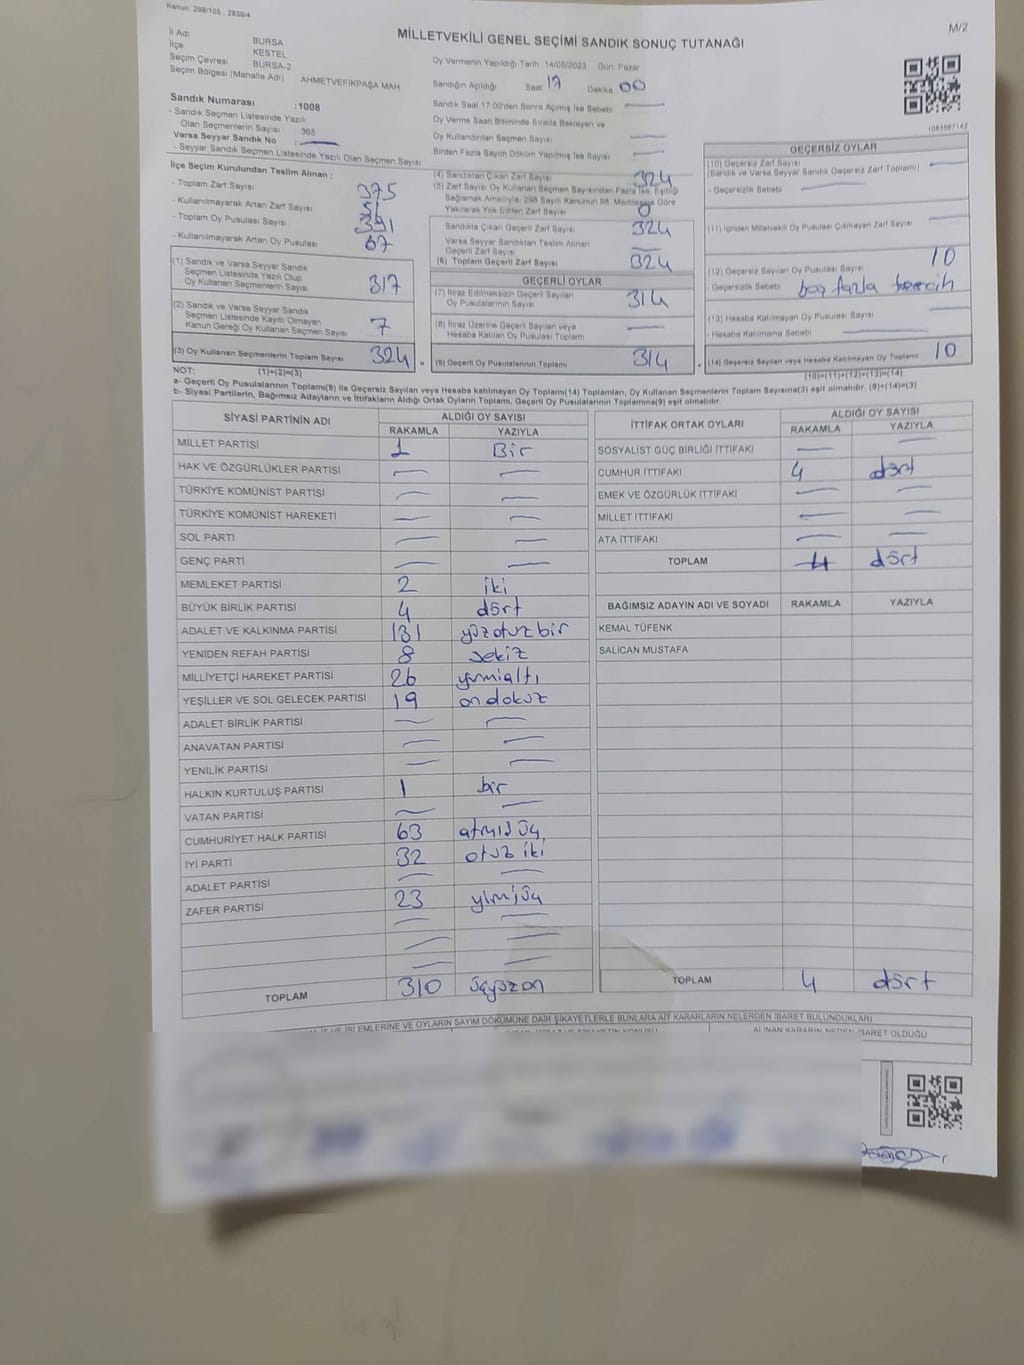 Kanun, 298/105 , 2839/4
M/2
MİLLETVEKİLİ GENEL SEÇİMİ SANDIK SONUÇ TUTANAĞI
İl Adı BURSA
İlçe KESTEL
Seçim Çevresi BURSA-2
Seçim Bölgesi (Mahalle Adı) AHMETVEFİKPAŞA MAH
Sandık Numarası :1008
- Sandık Seçmen Listesinde Yazılı
Olan Seçmenlerin Sayısı 365
Varsa Seyyar Sandık No :
- Seyyar Sandık Seçmen Listesinde Yazılı Olan Seçmen Sayısı
Oy Vermenin Yapıldığı Tarih 14/05/2023 Gün: Pazar
Sandığın Açıldığı Saat 17 Dakika 00
Sandık Saat 17:00'den Sonra Açılmış İse Sebebi
Oy Verme Saati Bitiminde Sırada Bekleyen ve
Oy Kullandırılan Seçmen Sayısı
Birden Fazla Sayım Döküm Yapılmış İse Sayısı
1083567142
İlçe Seçim Kurulundan Teslim Alınan :
- Toplam Zarf Sayısı 375
- Kullanılmayarak Artan Zarf Sayısı 51
- Toplam Oy Pusulası Sayısı 391
- Kullanılmayarak Artan Oy Pusulası 67
(1) Sandık ve Varsa Seyyar Sandık
Seçmen Listesinde Yazılı Olup
Oy Kullanan Seçmenlerin Sayısı 317
(2) Sandık ve Varsa Seyyar Sandık
Seçmen Listesinde Kayıtlı Olmayan
Kanun Gereği Oy Kullanan Seçmen Sayısı 7
(3) Oy Kullanan Seçmenlerin Toplam Sayısı 324
(4) Sandıktan Çıkan Zarf Sayısı 324
(5) Zarf Sayısı Oy Kullanan Seçmen Sayısından Fazla İse, Eşitliği
Sağlamak Amacıyla, 298 Sayılı Kanunun 98. Maddesine Göre
Yakılarak Yok Edilen Zarf Sayısı 0
Sandıkta Çıkan Geçerli Zarf Sayısı 324
Varsa Seyyar Sandıktan Teslim Alınan
Geçerli Zarf Sayısı
(6) Toplam Geçerli Zarf Sayısı 324
GEÇERLİ OYLAR
(7) İtiraz Edilmeksizin Geçerli Sayılan
Oy Pusulalarının Sayısı 314
(8) İtiraz Üzerine Geçerli Sayılan veya
Hesaba Katılan Oy Pusulası Toplamı
(9) Geçerli Oy Pusulalarının Toplamı 314
GEÇERSİZ OYLAR
(10) Geçersiz Zarf Sayısı
(Sandık ve Varsa Seyyar Sandık Geçersiz Zarf Toplamı)
- Geçersizlik Sebebi
(11) İçinden Milletvekili Oy Pusulası Çıkmayan Zarf Sayısı
(12) Geçersiz Sayılan Oy Pusulası Sayısı 10
- Geçersizlik Sebebi boş fazla tercih
(13) Hesaba Katılmayan Oy Pusulası Sayısı
- Hesaba Katılmama Sebebi
(14) Geçersiz Sayılan veya Hesaba Katılmayan Oy Toplamı 10
NOT: (1)+(2)=(3) (10)+(11)+(12)+(13)=(14)
a- Geçerli Oy Pusulalarının Toplamı(9) ile Geçersiz Sayılan veya Hesaba katılmayan Oy Toplamı(14) Toplamları, Oy Kullanan Seçmenlerin Toplam Sayısına(3) eşit olmalıdır. (9)+(14)=(3)
b- Siyasi Partilerin, Bağımsız Adayların ve İttifakların Aldığı Ortak Oyların Toplamı, Geçerli Oy Pusulalarının Toplamına(9) eşit olmalıdır.
SİYASİ PARTİNİN ADI ALDIĞI OY SAYISI
RAKAMLA YAZIYLA
MİLLET PARTİSİ 1 Bir
HAK VE ÖZGÜRLÜKLER PARTİSİ
TÜRKİYE KOMÜNİST PARTİSİ
TÜRKİYE KOMÜNİST HAREKETİ
SOL PARTİ
GENÇ PARTİ
MEMLEKET PARTİSİ 2 iki
BÜYÜK BİRLİK PARTİSİ 4 dört
ADALET VE KALKINMA PARTİSİ 131 yüzotuzbir
YENİDEN REFAH PARTİSİ 8 sekiz
MİLLİYETÇİ HAREKET PARTİSİ 26 yirmialtı
YEŞİLLER VE SOL GELECEK PARTİSİ 19 ondokuz
ADALET BİRLİK PARTİSİ
ANAVATAN PARTİSİ
YENİLİK PARTİSİ
HALKIN KURTULUŞ PARTİSİ 1 bir
VATAN PARTİSİ
CUMHURİYET HALK PARTİSİ 63 atmışüç
İYİ PARTİ 32 otuz iki
ADALET PARTİSİ
ZAFER PARTİSİ 23 yimiüç
TOPLAM 310 üçyüzon
İTTİFAK ORTAK OYLARI ALDIĞI OY SAYISI
RAKAMLA YAZIYLA
SOSYALİST GÜÇ BİRLİĞİ İTTİFAKI
CUMHUR İTTİFAKI 4 dört
EMEK VE ÖZGÜRLÜK İTTİFAKI
MİLLET İTTİFAKI
ATA İTTİFAKI
TOPLAM 4 dört
BAĞIMSIZ ADAYIN ADI VE SOYADI RAKAMLA YAZIYLA
KEMAL TÜFENK
SALİCAN MUSTAFA
TOPLAM 4 dört
İŞ VE İŞLEMLERİNE VE OYLARIN SAYIM DÖKÜMÜNE DAİR ŞİKAYETLERLE BUNLARA AİT KARARLARIN NELERDEN İBARET BULUNDUKLARI
ALINAN KARARIN NEDEN İBARET OLDUĞU